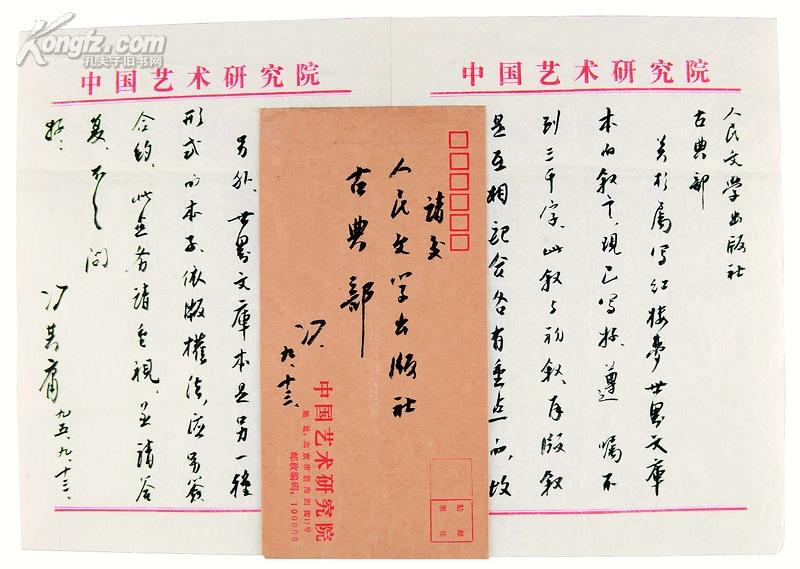 Kongfz.com
孔夫子旧书网
中国艺术研究院
人民文学出版社
古典部
关于属写红楼梦世界文库
本的叙言，现已写好，遵嘱不
到三千字，此叙与初叙、再版叙
是互相配合各有重点的，故
中国艺术研究院
另外，世界文库本是另一种
形式的本子，依版权法，应另签
合约，此点务请重视，并请答
复，不一，问
好，
冯其庸 九五、九、十三、
请交
人民文学出版社
古典部
冯、九、十三、
中国艺术研究院
地址：北京市前海西街17号
邮政编码：100009
贴邮
票处